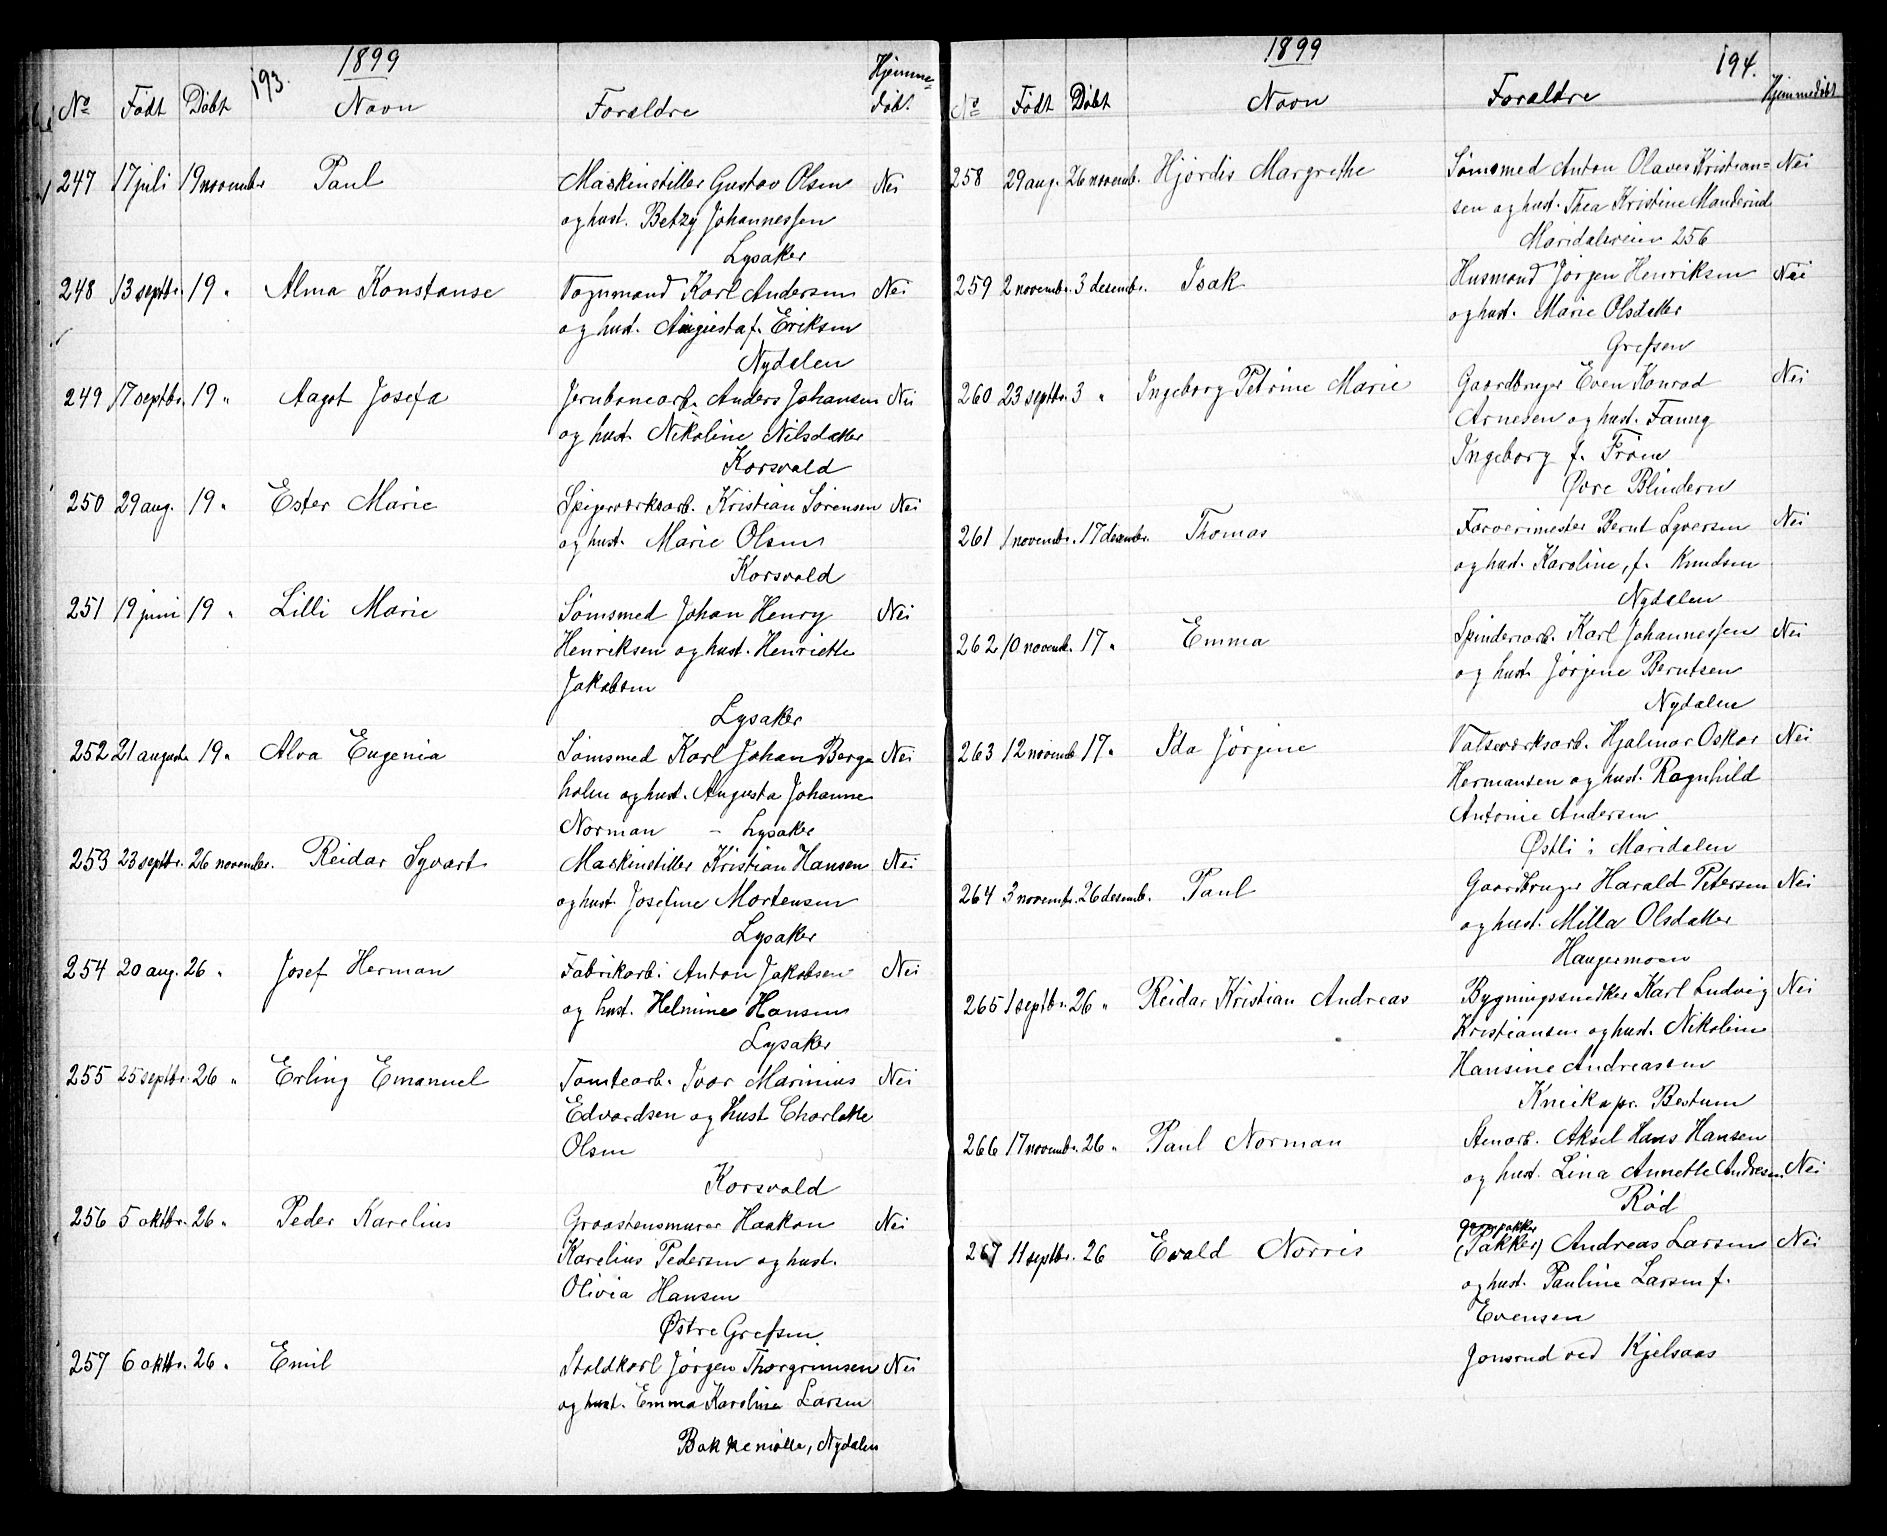 193.
1899
No Født Døbt Navn Forældre Hjemme=
døbt.
247 17 juli 19 november Paul Maskinstiller Gustav Olsen Nei
og hust. Betzy Johannessen
Lysaker
248 13 septbr. 19 " Alma Konstanse Vognmand Karl Andersen Nei
og hust. Augusta f. Eriksen
Nydalen
249 17 septbr. 19 " Aagot Josefa Jernbanearb. Anders Johansen Nei
og hust. Nikoline Nilsdatter
Korsvold
250 29 aug. 19 " Ester Marie Spigerverksarb. Kristian Sørensen Nei
og hust. Marie Olsen
Korsvold
251 19 juni 19 " Lilli Marie Sømsmed Johan Henry Nei
Henriksen og hust. Henriette
Jakobsen
Lysaker
252 21 august 19 " Alva Eugenia Sømsmed Karl Johan Berge Nei
holm og hust. Augusta Johanne
Norman - Lysaker
253 23 septbr. 26 novembr. Reidar Syvart Maskinstiller Kristian Hansen Nei
og hust. Josefine Mortensen
Lysaker
254 20 aug. 26 " Josef Herman Fabrikarb. Anton Jakobsen Nei
og hust. Helmine Hansen
Lysaker
255 25 septbr. 26 " Erling Emanuel Tomtearb. Ivar Marinius Nei
Edvardsen og hust Charlotte
Olsen
Korsvold
256 5 oktbr. 26 " Peder Karelius Graastensmurer Haakon Nei
Karelius Pedersen og hust.
Olivia Hansen
Østre Grefsen
257 6 oktbr. 26 " Emil Staldkarl Jørgen Thorgrimsen Nei
og hust. Emma Karoline Larsen
Bakkemølla, Nydalen
1899
194.
No Født Døbt Navn Forældre Hjemmedøbt
258 29 aug. 26 novemb. Hjørdis Margrethe Sømsmed Anton Olaves Kristian= Nei
sen og hust. Thea Kristine Manderud
Maridalsveien 256
259 2 novembr. 3 desembr. Isak Husmand Jørgen Henriksen Nei
og hust. Marie Olsdatter
Grefsen
260 23 septbr. 3 " Ingeborg Petrine Marie Gaardbruger Even Konrad Nei
Arnesen og hust. Fanny
Ingeborg f. Frøen
Øvre Blindern
261 1 novembr. 17 desembr. Thomas Farverimester Bernt Syversen Nei
og hust. Karoline, f. Knudsen
Nydalen
262 10 novemb. 17 " Emma Spinderiarb. Karl Johannessen Nei
og hust. Jørgine Berntsen
Nydalen
263 12 novemb 17 " Ida Jørgine Valseværksarb. Hjalmar Oskar Nei
Hermansen og hust. Ragnhild
Antonie Andersen
Østli i Maridalen
264 3 novembr. 26 desemb. Paul Gaardbruger Harald Petersen Nei
og hust. Milla Olsdatter
Haugermoen
265 1 septbr. 26 " Reidar Kristian Andreas Bygningssnedker Karl Ludvig Nei
Kristiansen og hust. Nikoline
Hansine Andreassen
Kneika pr. Bestum
266 17 novembr. 26 " Paul Norman Stenarb. Aksel Hans Hansen
og hust. Lina Annette Andresen Nei
Rød
267 11 septbr. 26 Evald Norris (Pakker) Andreas Larsen Nei
og hust. Pauline Larsen f.
Evensen
Jonsrud ved Kjelsaas